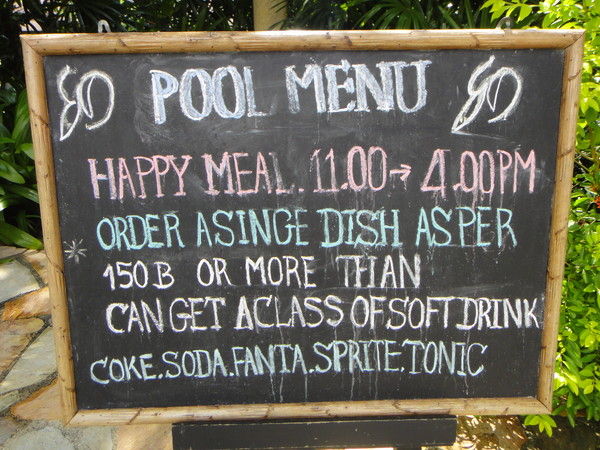 POOL MENU
HAPPY MEAL. 11.00 → 4.00PM
ORDER A SINGE DISH AS PER
150 B OR MORE THAN
CAN GET A CLASS OF SOFT DRINK
COKE.SODA.FANTA.SPRITE.TONIC